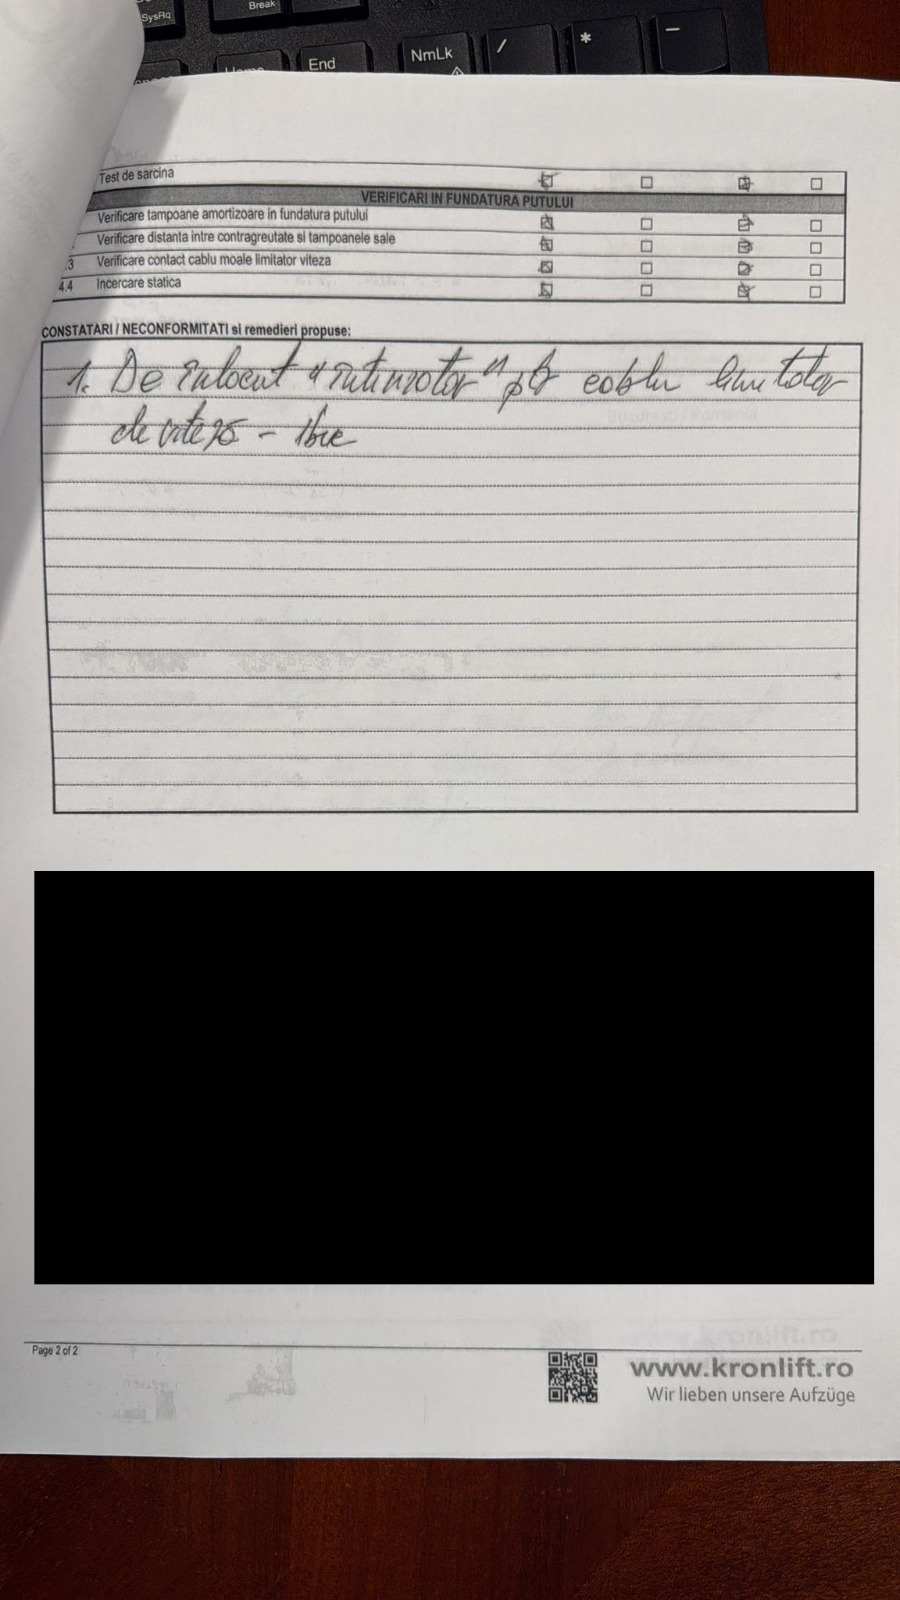 SysRq
Break
Home
End
NmLk
/
*
−
Test de sarcina
VERIFICARI IN FUNDATURA PUTULUI
Verificare tampoane amortizoare in fundatura putului
Verificare distanta intre contragreutate si tampoanele sale
.3 Verificare contact cablu moale limitator viteza
4.4 Incercare statica
CONSTATARI / NECONFORMITATI si remedieri propuse:
1. De inlocuit "intinzator" ptr cablu limitator
de viteză - 1buc
Page 2 of 2
www.kronlift.ro
Wir lieben unsere Aufzüge